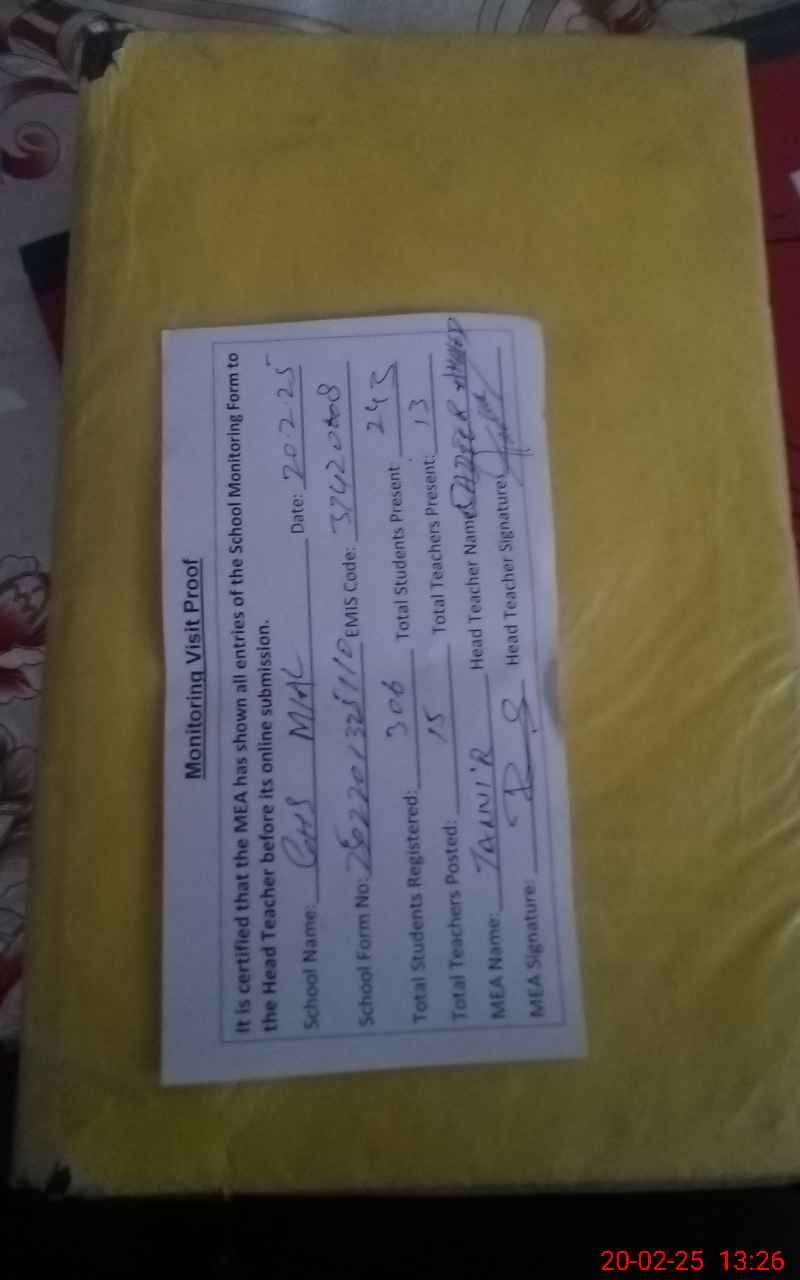 Monitoring Visit Proof
It is certified that the MEA has shown all entries of the School Monitoring Form to
the Head Teacher before its online submission.
School Name: GHS MIAL Date: 20.2.25
School Form No: EMIS Code:
Total Students Registered: 306 Total Students Present 243
Total Teachers Posted: 15 Total Teachers Present: 13
MEA Name: Head Teacher Name AHMED
MEA Signature: Head Teacher Signature
20-02-25 13:26